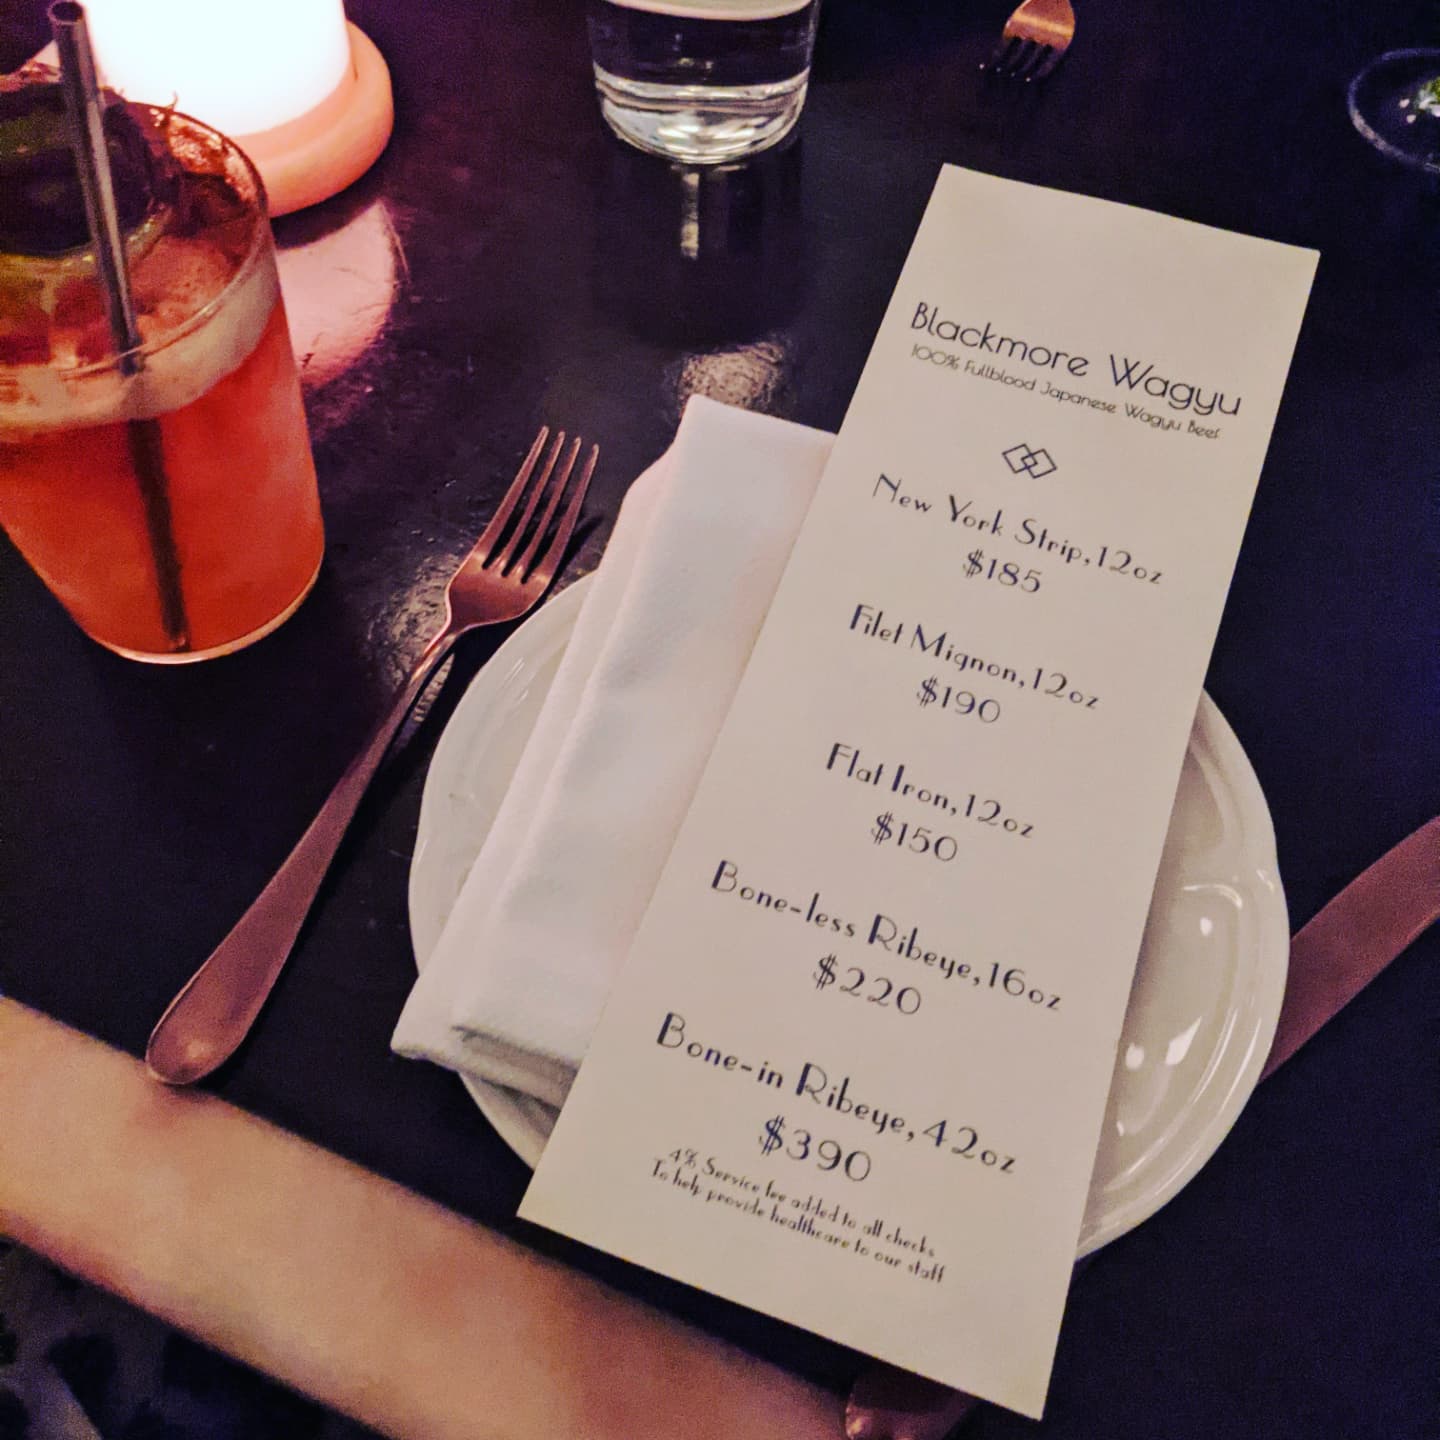 Blackmore Wagyu
100% Fullblood Japanese Wagyu Beef
New York Strip, 12oz
$185
Filet Mignon, 12oz
$190
Flat Iron, 12oz
$150
Bone-less Ribeye, 16oz
$220
Bone-in Ribeye, 42oz
$390
4% Service fee added to all checks
To help provide healthcare to our staff